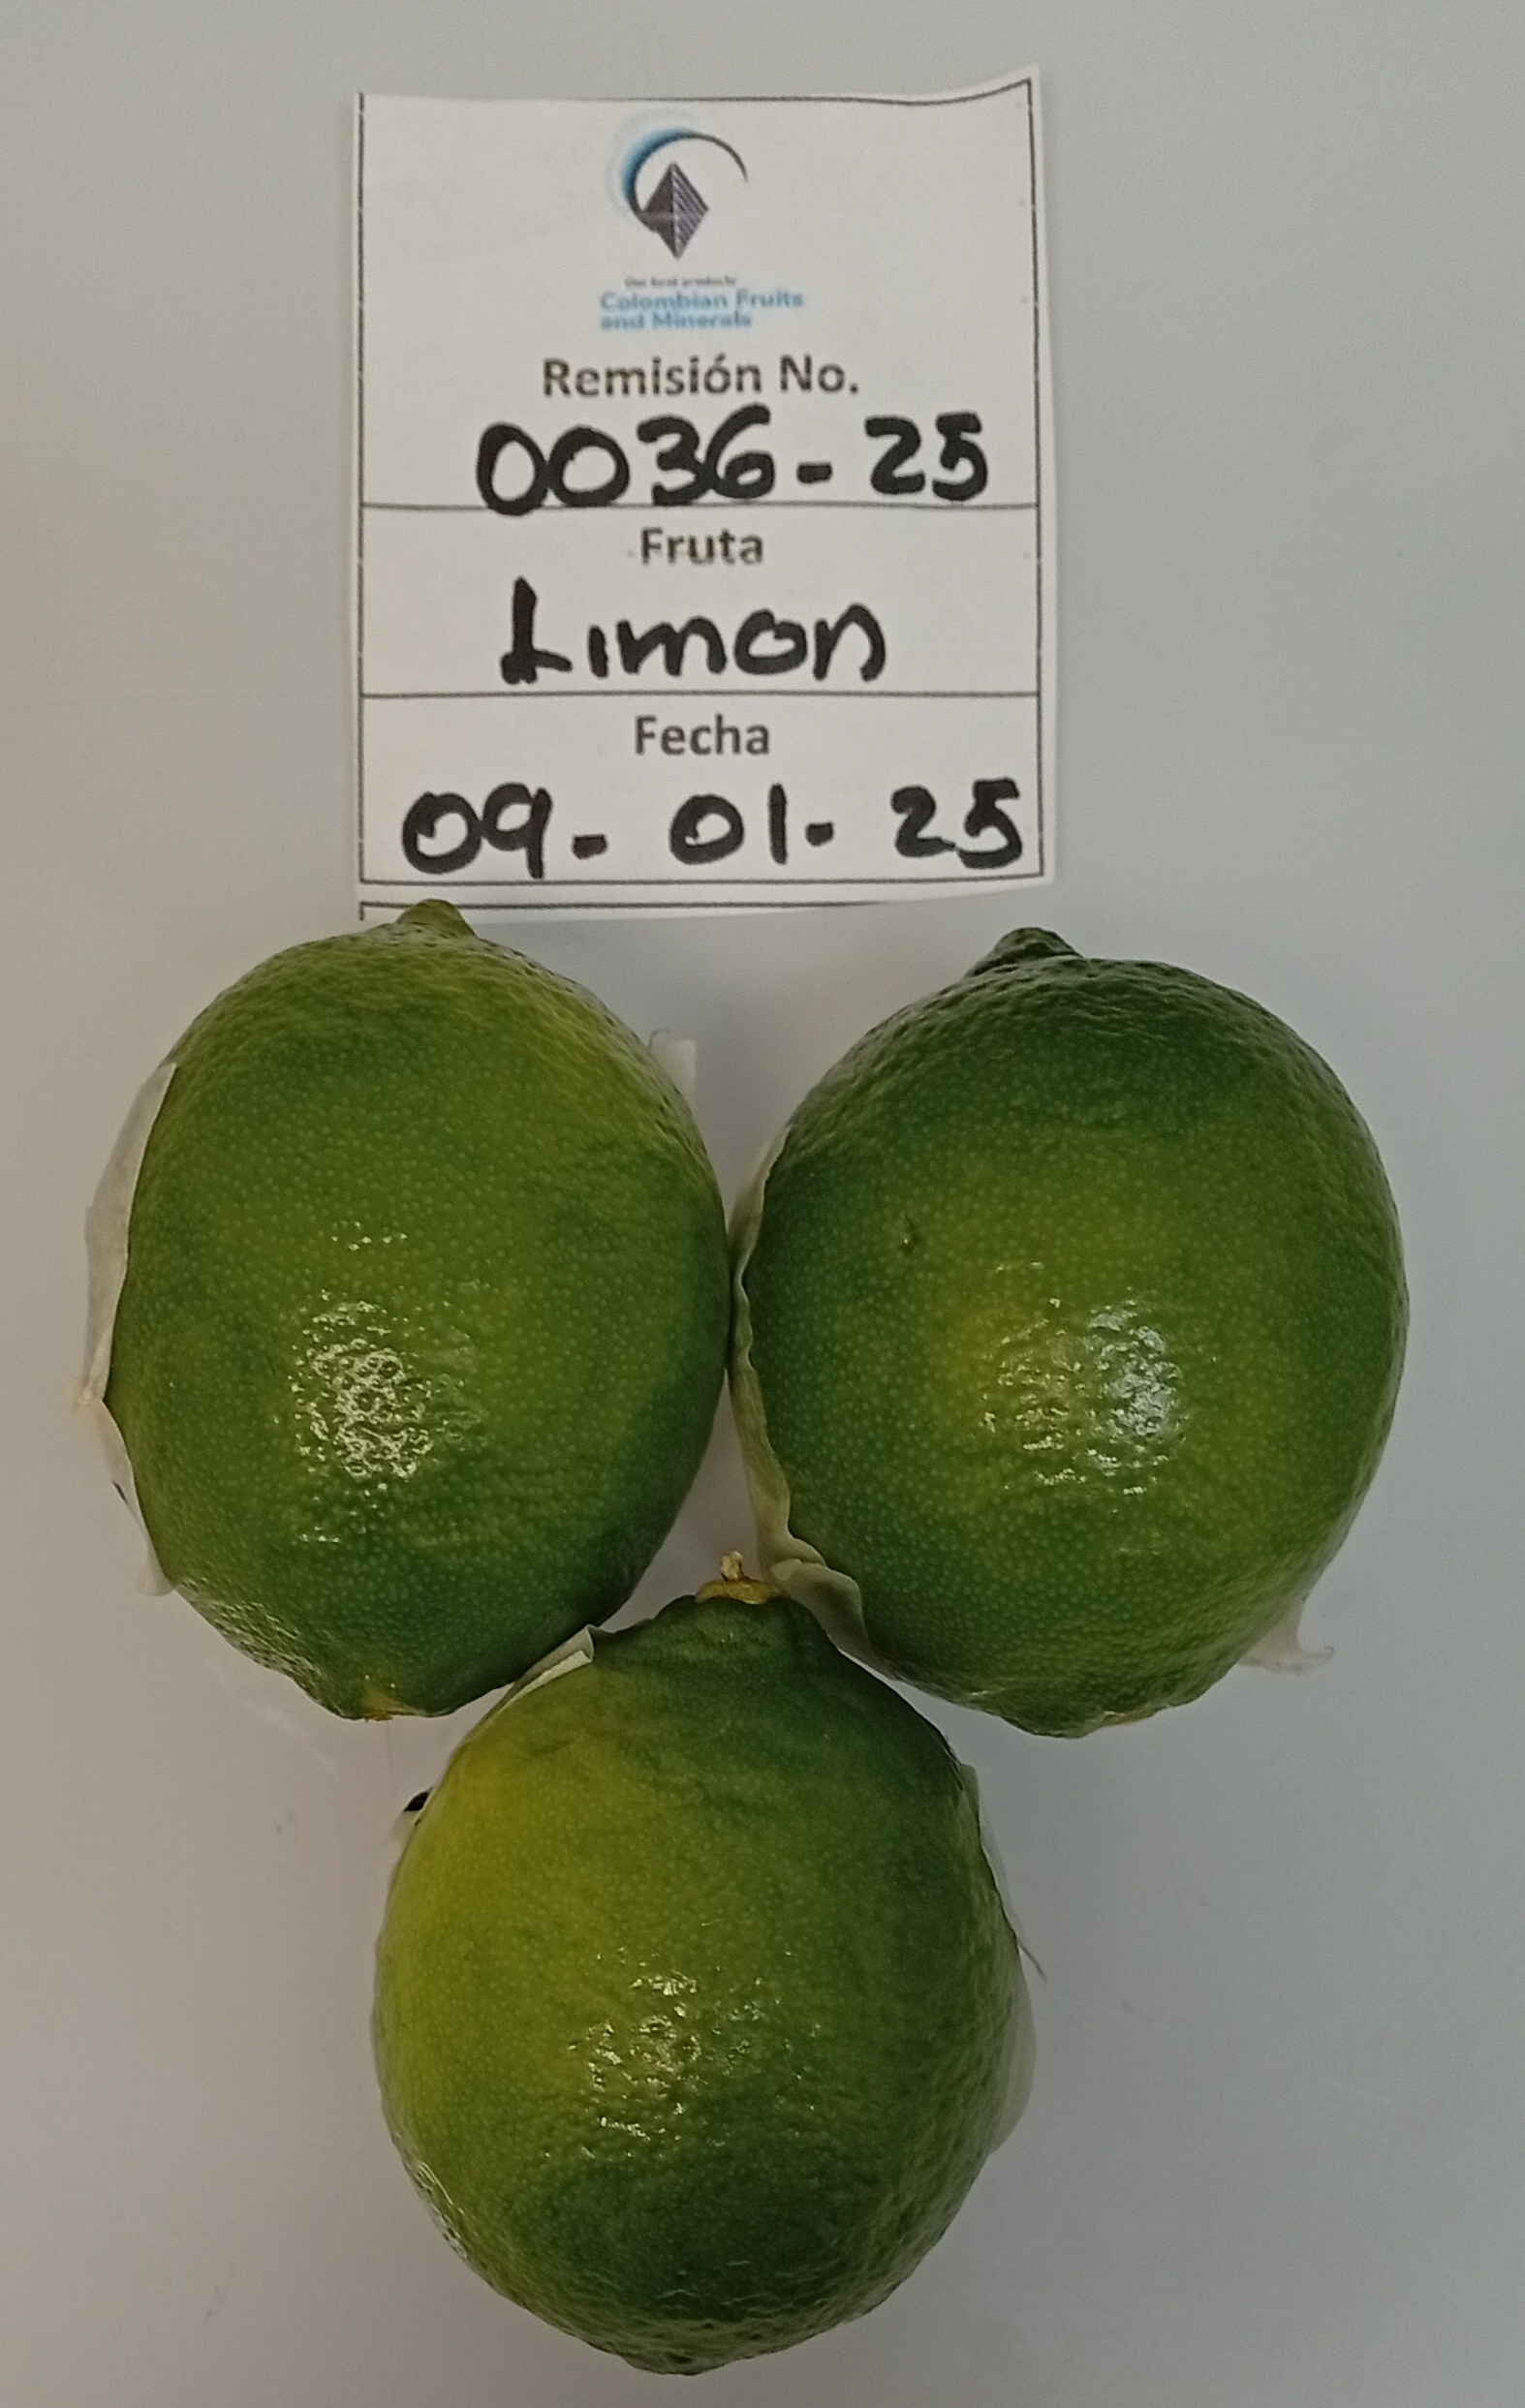 Our best products
Colombian Fruits
and Minerals
Remisión No.
0036-25
Fruta
Limon
Fecha
09-01-25